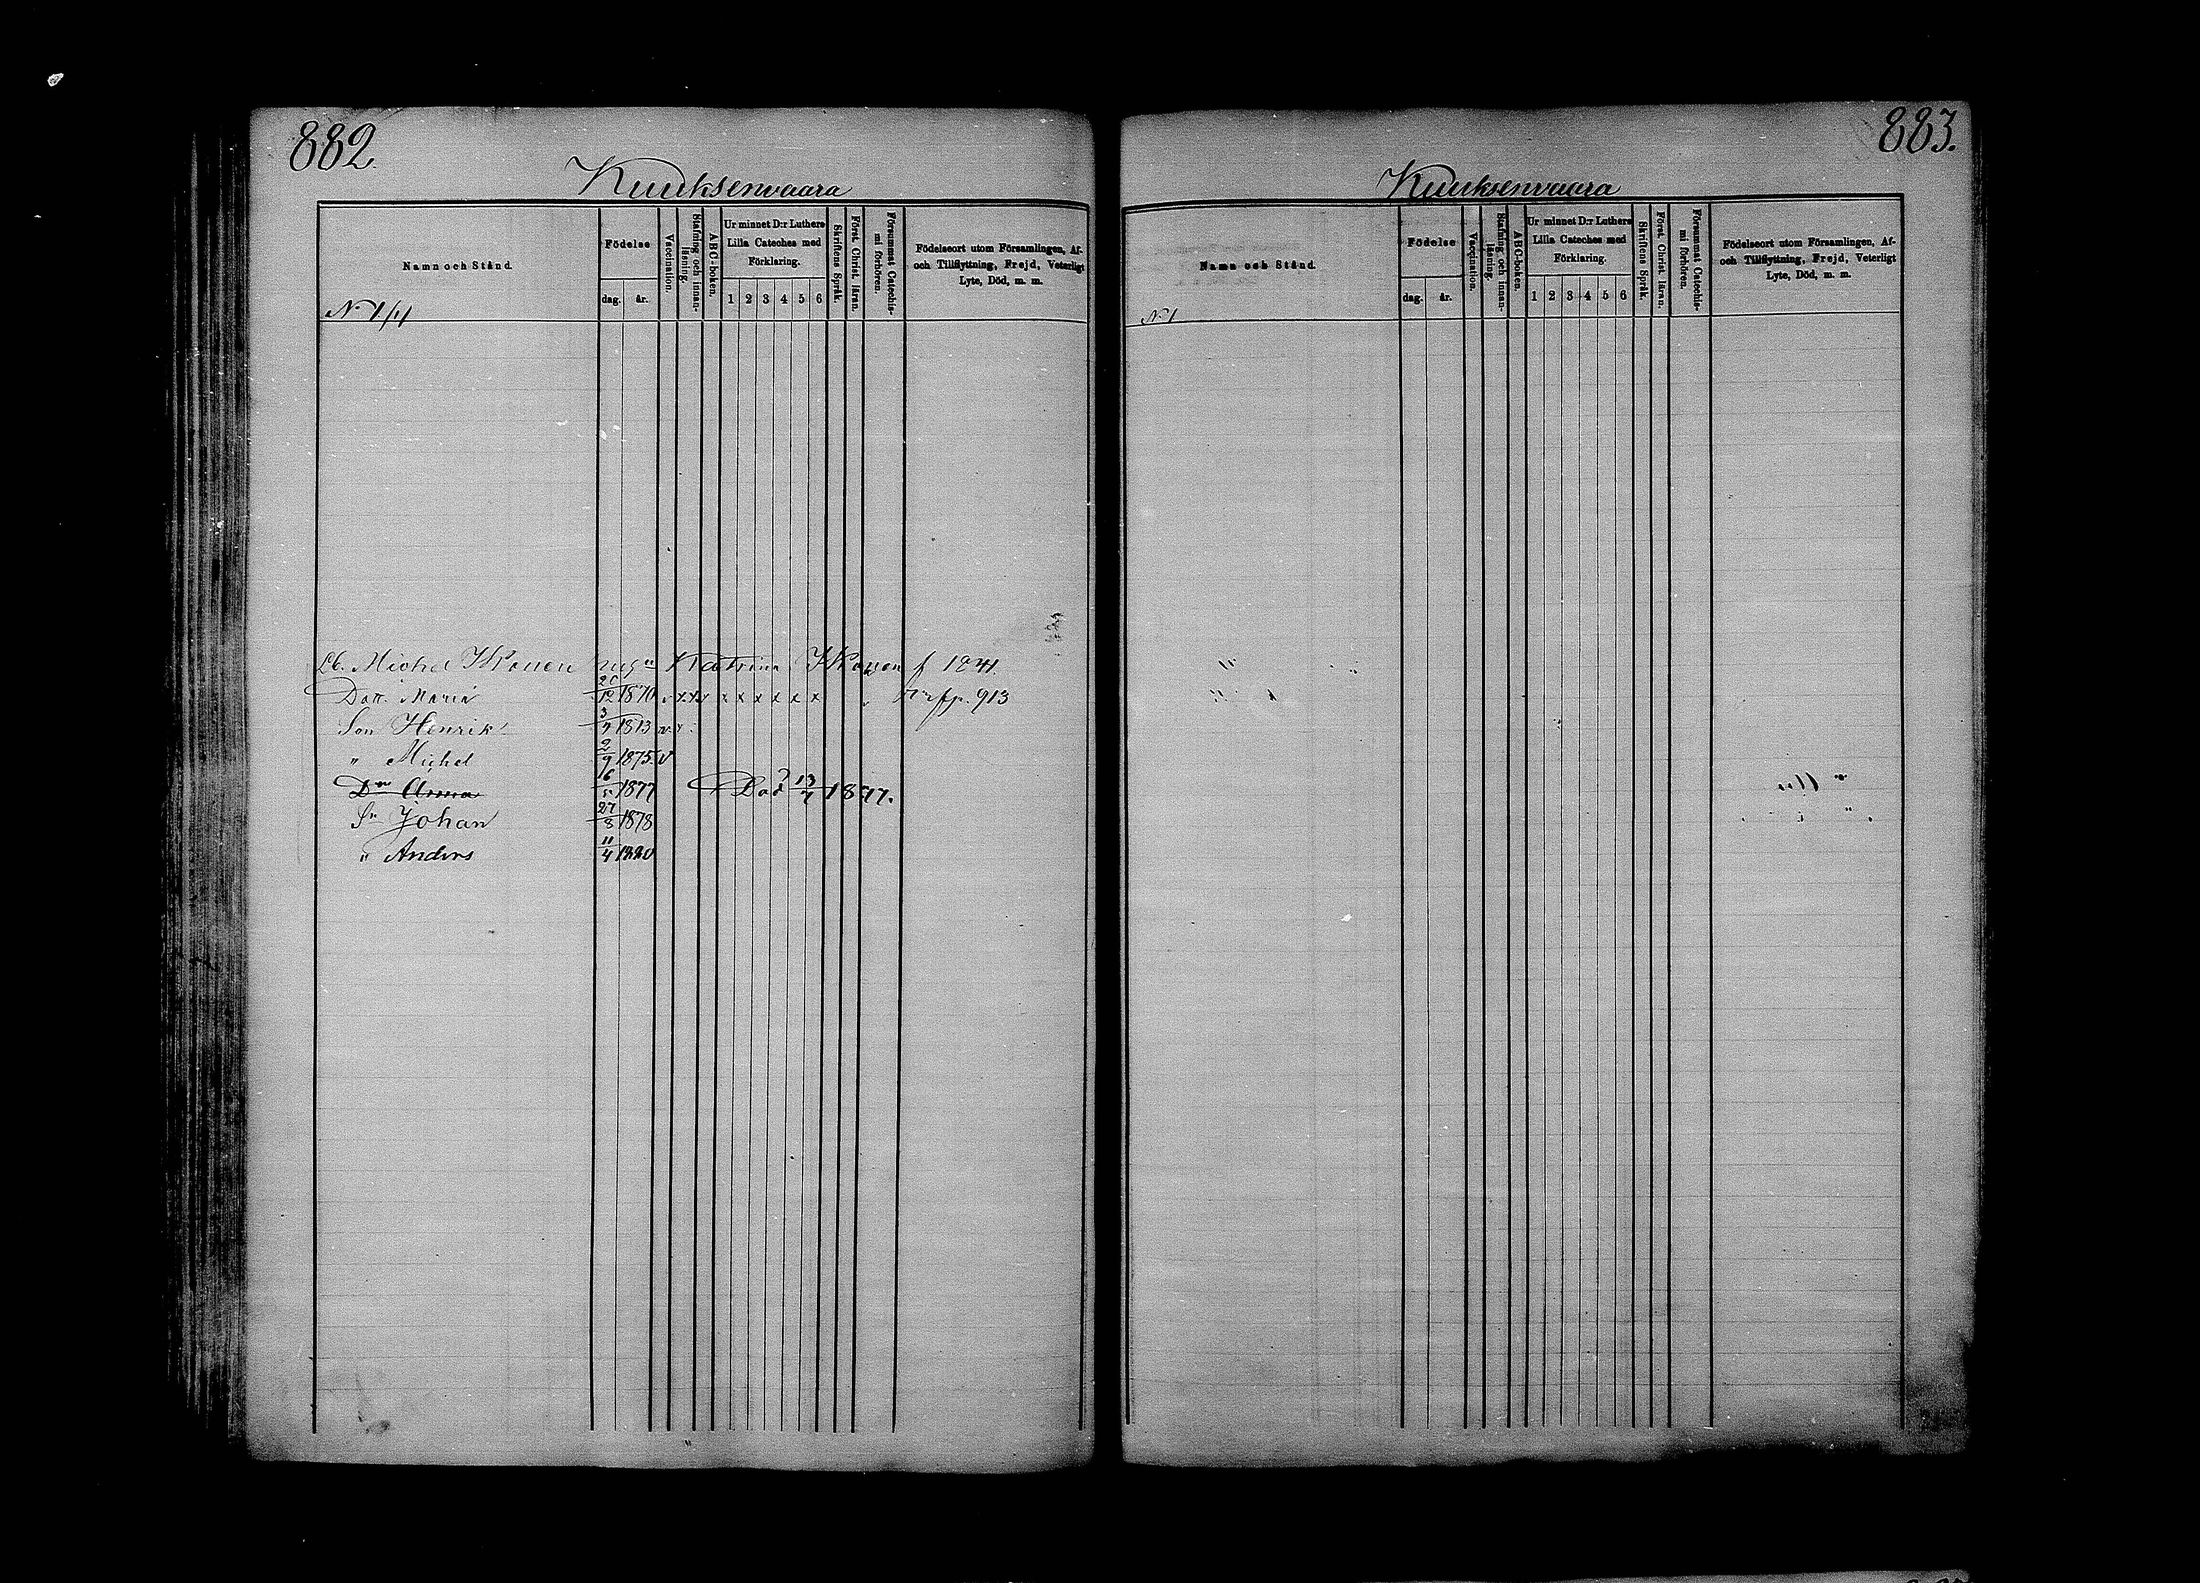 882.
Kuuksenvaara
Namn och Stånd.
Födelse
dag. år.
Vaccination.
Stafning och innanläsning.
ABC-boken.
Ur minnet D:r Luthers Lilla Cateches med Förklaring.
1 2 3 4 5 6
Skriftens Språk.
Först. Christ. läran.
Försummat Catechismi förhören.
Födelseort utom Församlingen, Af- och Tillflyttning, Frejd, Veterligt Lyte, Död, m. m.
N 1/4
Michel Ikonen Katrina Ikonen f 1841.
Dott. Maria 12 1870 v x x x x x x x x x p. 913
Son Henrik 3/4 1873
" Michel 2/9 1875 v
Dr Anna 16/5 1877 Död 13/7 1877.
Sn Johan 27/8 1878
" Anders 11/4 1880
883.
Kuuksenvaara
Namn och Stånd.
Födelse
dag. år.
Vaccination.
Stafning och innanläsning.
ABC-boken.
Ur minnet D:r Luthers Lilla Cateches med Förklaring.
1 2 3 4 5 6
Skriftens Språk.
Först. Christ. läran.
Försummat Catechismi förhören.
Födelseort utom Församlingen, Af- och Tillflyttning, Frejd, Veterligt Lyte, Död, m. m.
N 1